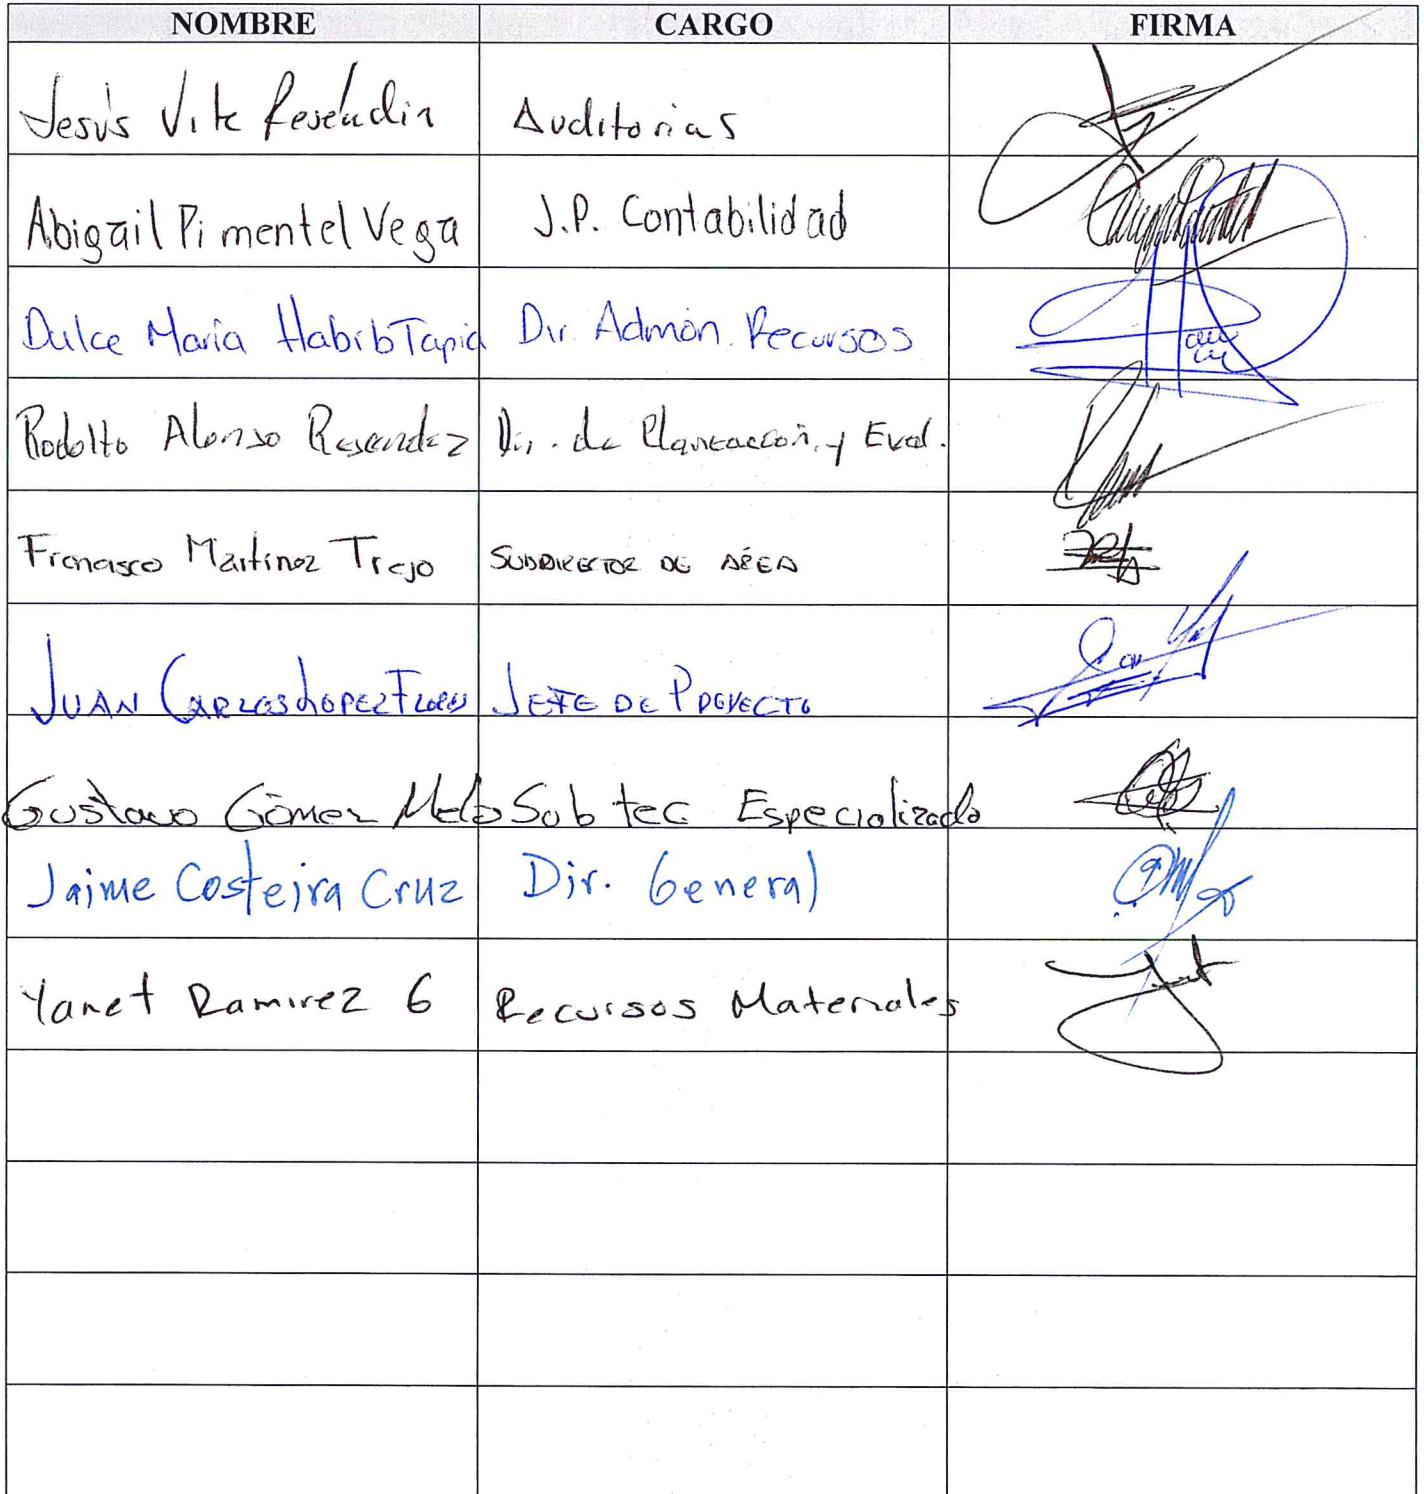 NOMBRE CARGO FIRMA
Jesús Vite Reséndiz Auditorias
Abigail Pimentel Vega J.P. Contabilidad
Dulce María Habib Tapia Dir. Admón. Recursos
Rodolfo Alonso Resendez Dir. de Planeación y Eval.
Francisco Martínez Trejo SUBDIRECTOR DE AREA
JUAN CARLOS LOPEZ FLORES JEFE DE PROYECTO
Gustavo Gómez Melo Sub tec Especializado
Jaime Costeira Cruz Dir. General
Yanet Ramirez G Recursos Materiales